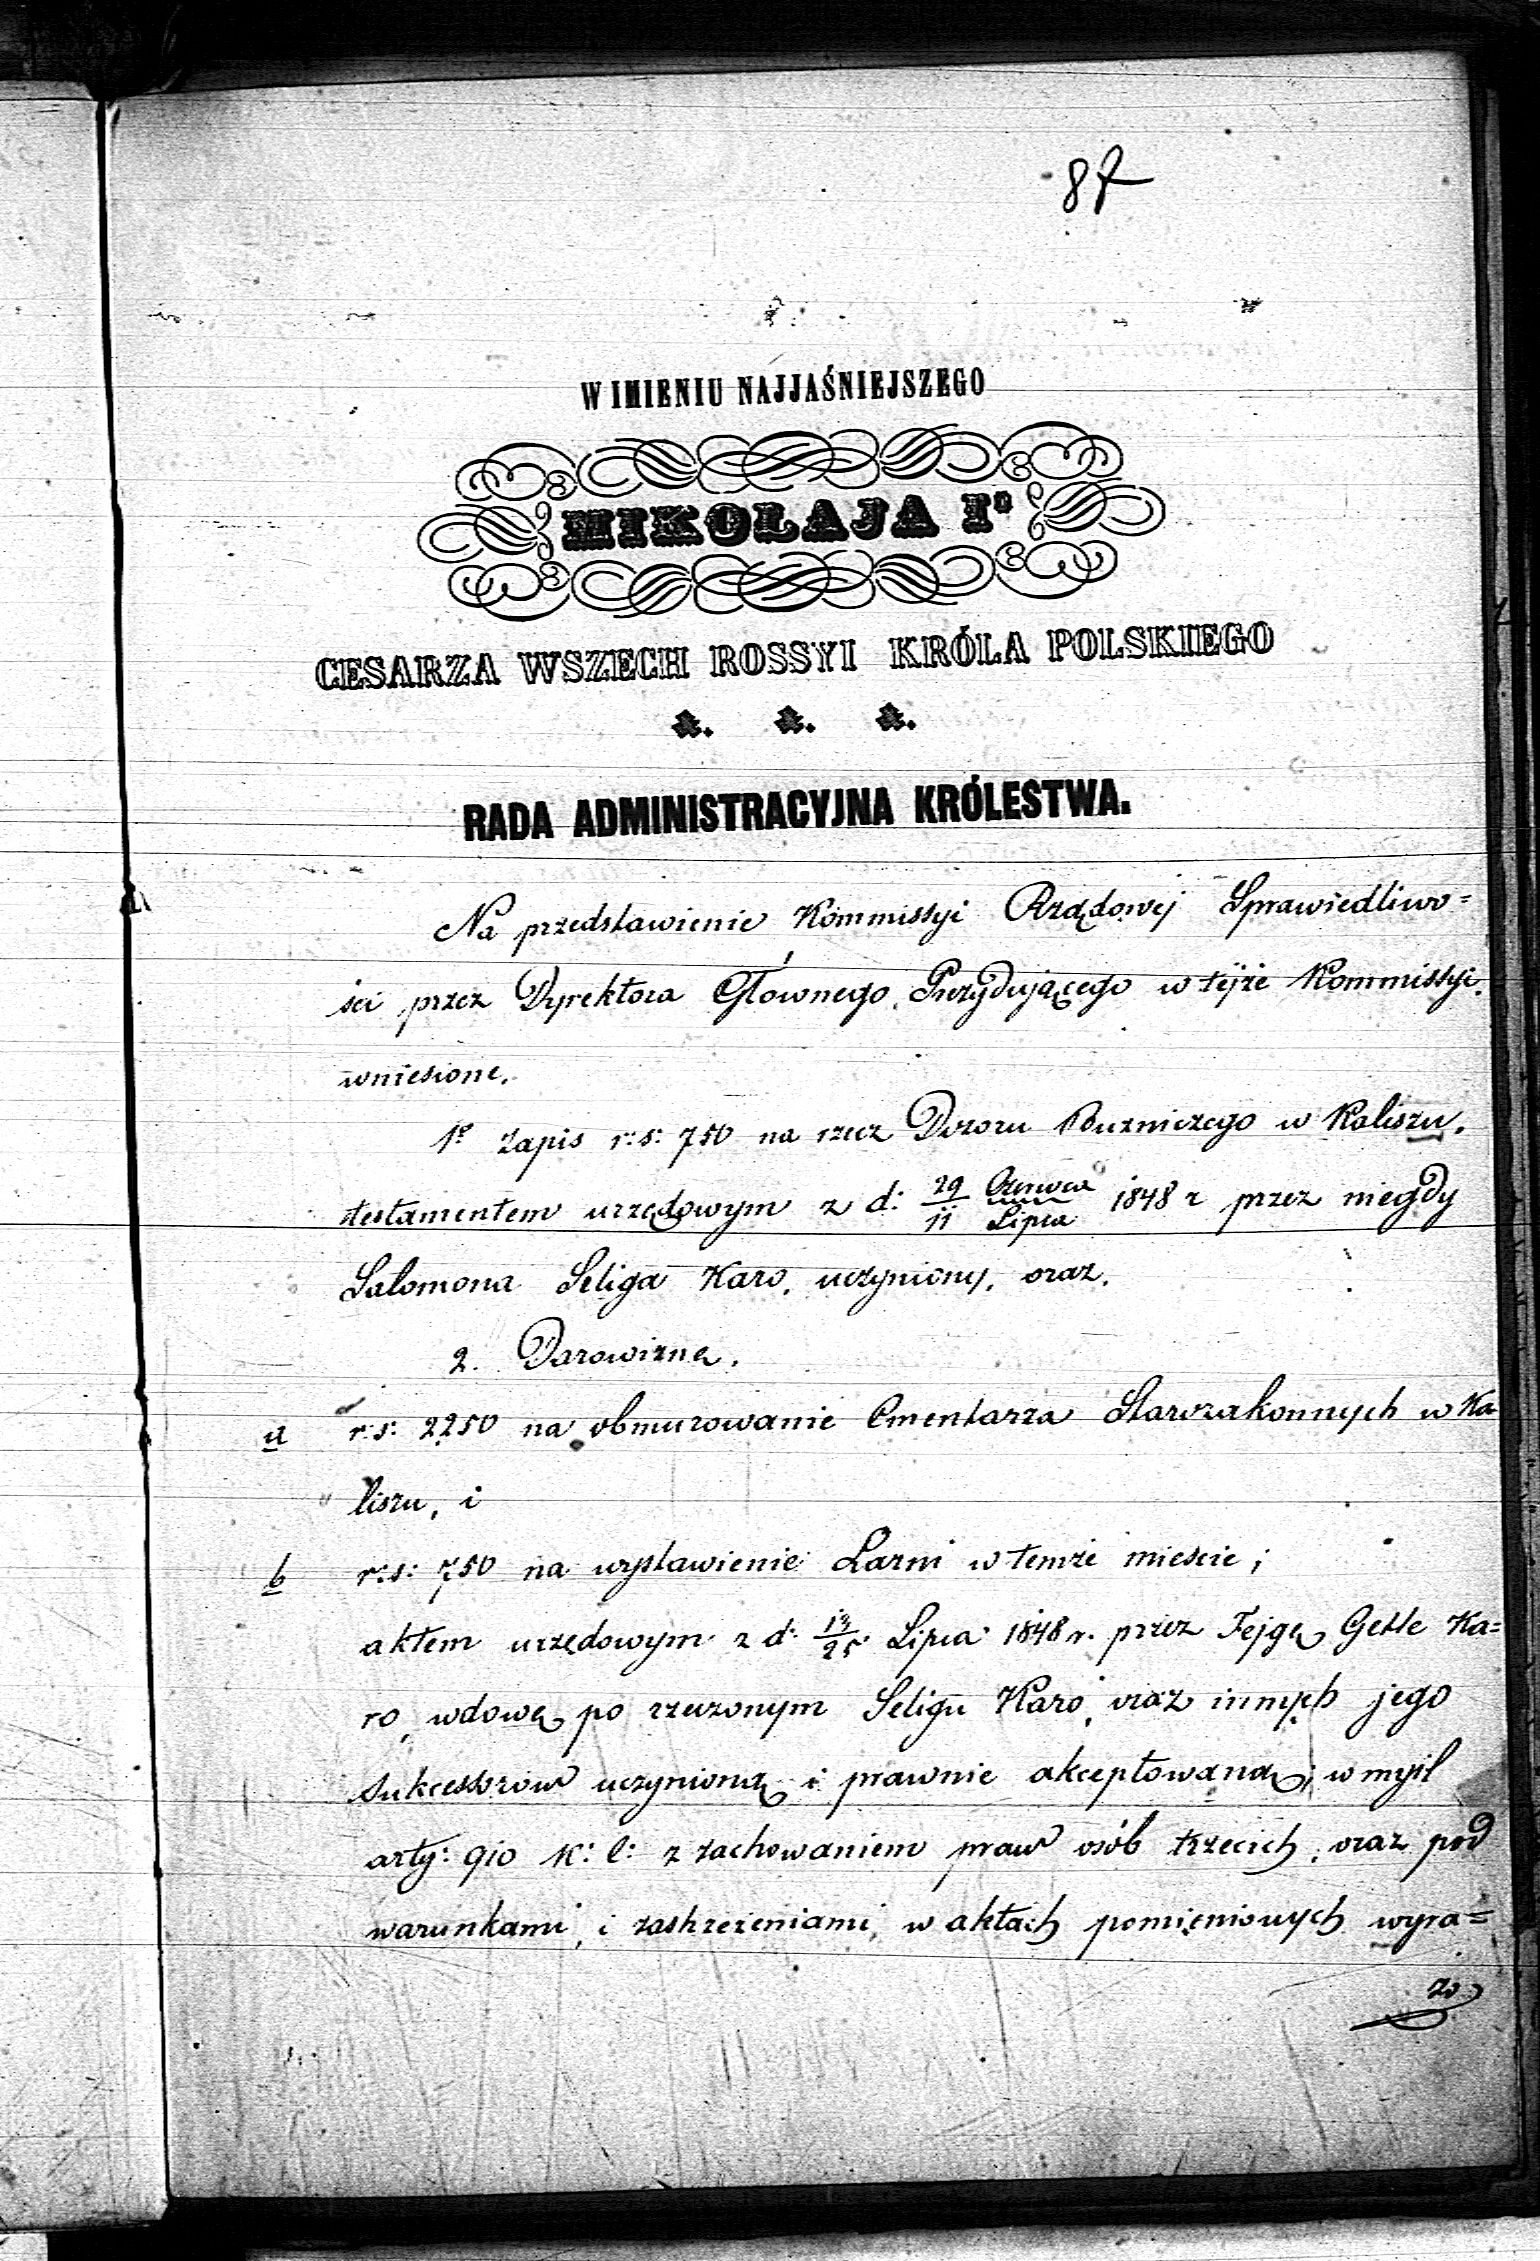 87
W IMIENIU NAJJAŚNIEJSZEGO
MIKOŁAJA Iº
CESARZA WSZECH ROSSYI KRÓLA POLSKIEGO
&. &. &.
RADA ADMINISTRACYJNA KRÓLESTWA.
Na przedstawienie Kommissyi Rządowej Sprawiedliwo=
ści przez Dyrektora Głównego, Prezydującego w tejże Kommissyi
wniesione.
1º zapis r: s: 750 na rzecz Dozoru Bużniczego w Kaliszu,
testamentem urzędowym z d: 29/11 Czerwca/Lipca 1848 r przez niegdy
Salomona Seliga Karo, uczyniony, oraz,
2. Darowiznę,
a r: s: 2250 na obmurowanie Cmentarza Starozakonnych w Ka
liszu, i
b r: s: 750 na wystawienie Łazni w temże mieście;
aktem urzędowym z d: 13/25 Lipca 1848 r. przez Fejgę Getle Ka=
ro, wdowę po rzeczonym Seligu Karo, oraz innych jego
Sukcessorów uczynioną i prawnie akceptowaną; w myśl
arty: 910 K: C: z zachowaniem praw osób trzecich, oraz pod
warunkami, i zastrzeżeniami, w aktach pomienionych wyra=
żo